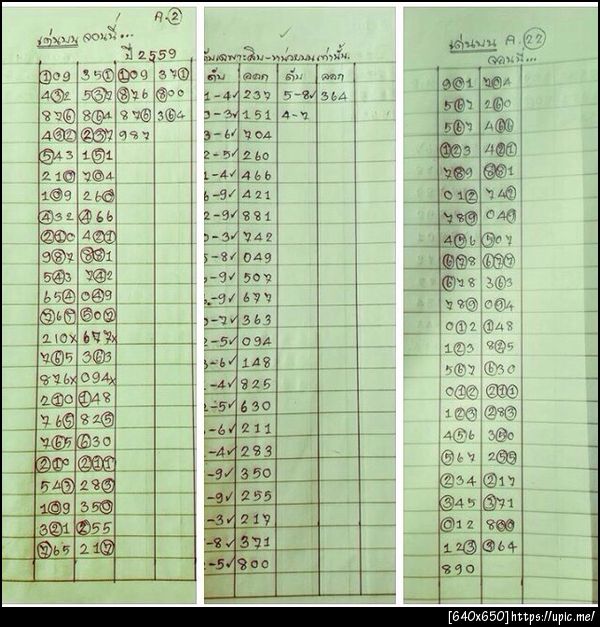 A.2
เด่นบน ลอนนี้...
ปี 2559
109 351 109 371
432 537 876 800
876 864 876 364
432 237 987
543 151
210 704
109 260
432 466
210 421
987 881
543 742
654 049
767 507
210x 677x
765 363
876x 094x
210 148
765 825
765 630
210 211
543 283
109 350
321 255
765 217
ดับ ลอก ดับ ลอก
1-4✓ 237 5-8✓ 364
0-3✓ 151 4-7
3-6✓ 704
2-5✓ 260
1-4✓ 466
6-9✓ 421
2-9✓ 881
0-3✓ 742
5-8✓ 049
-9✓ 507
-9✓ 677
0-7✓ 363
2-5✓ 094
3-6✓ 148
1-4✓ 825
2-5✓ 630
-6✓ 211
-4✓ 283
-9✓ 350
-9✓ 255
-3✓ 217
-8✓ 371
2-5✓ 800
เด่นบน A.22
ลอนนี้...
901 704
567 260
567 466
123 421
789 881
012 742
789 049
456 507
678 677
678 363
789 094
012 148
123 825
567 630
012 211
123 283
456 350
567 255
234 217
345 371
012 800
123 364
890
[640x650]https://upic.me/